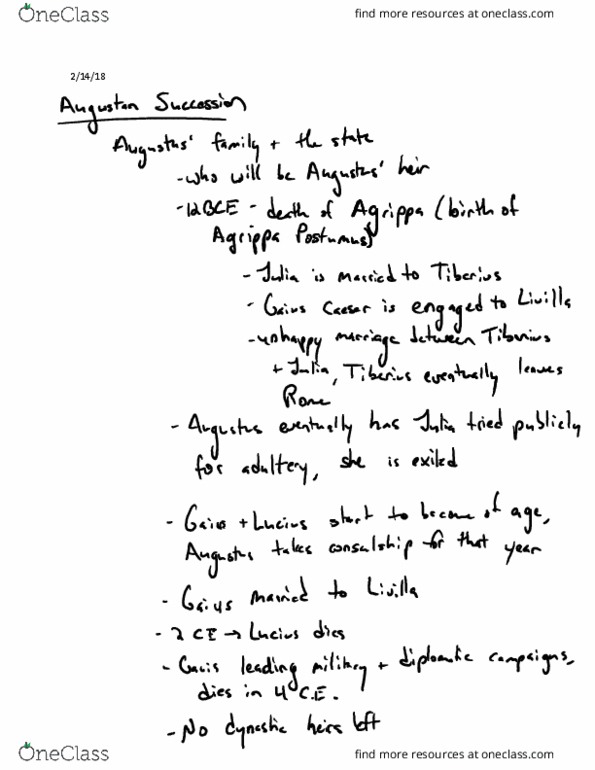 OneClass
find more resources at oneclass.com
2/14/18
Augustan Succession
Augustus' family + the state
- who will be Augustus' heir
- 12BCE - death of Agrippa (birth of
Agrippa Postumus)
- Julia is married to Tiberius
- Gaius Caesar is engaged to Livilla
- unhappy marriage between Tiberius
+ Julia, Tiberius eventually leaves
Rome
- Augustus eventually has Julia tried publicly
for adultery, she is exiled
- Gaius + Lucius start to become of age,
Augustus takes consulship for that year
- Gaius married to Livilla
- 2 CE → Lucius dies
- Gauis leading military + diplomatic campaigns,
dies in 4 C.E.
- No dynastic heirs left
OneClass
find more resources at oneclass.com